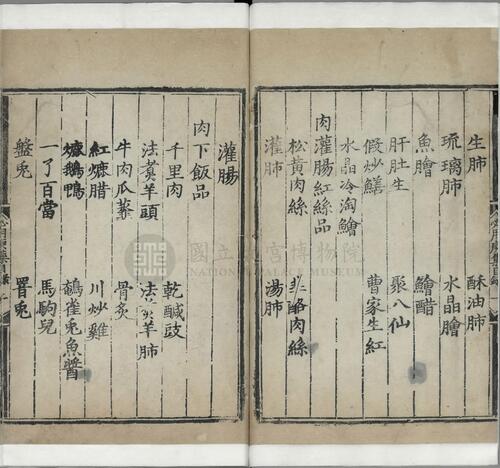 生肺 酥油肺
琉璃肺 水晶膾
魚膾 鱠醋
肝肚生 聚八仙
假炒鱔 曹家生紅
水晶冷淘鱠
肉灌腸紅絲品
松黄肉絲 韭酪肉絲
灌肺 湯肺
灌腸
肉下飯品
千里肉 乾醎豉
法煑羊頭 法煑羊肺
牛肉瓜虀 骨炙
紅爊腊 川炒雞
爊鵝鴨 鵪雀兎魚醬
一了百當 馬駒兒
盤兎 署兎
國立故宮博物院
NATIONAL PALACE MUSEUM